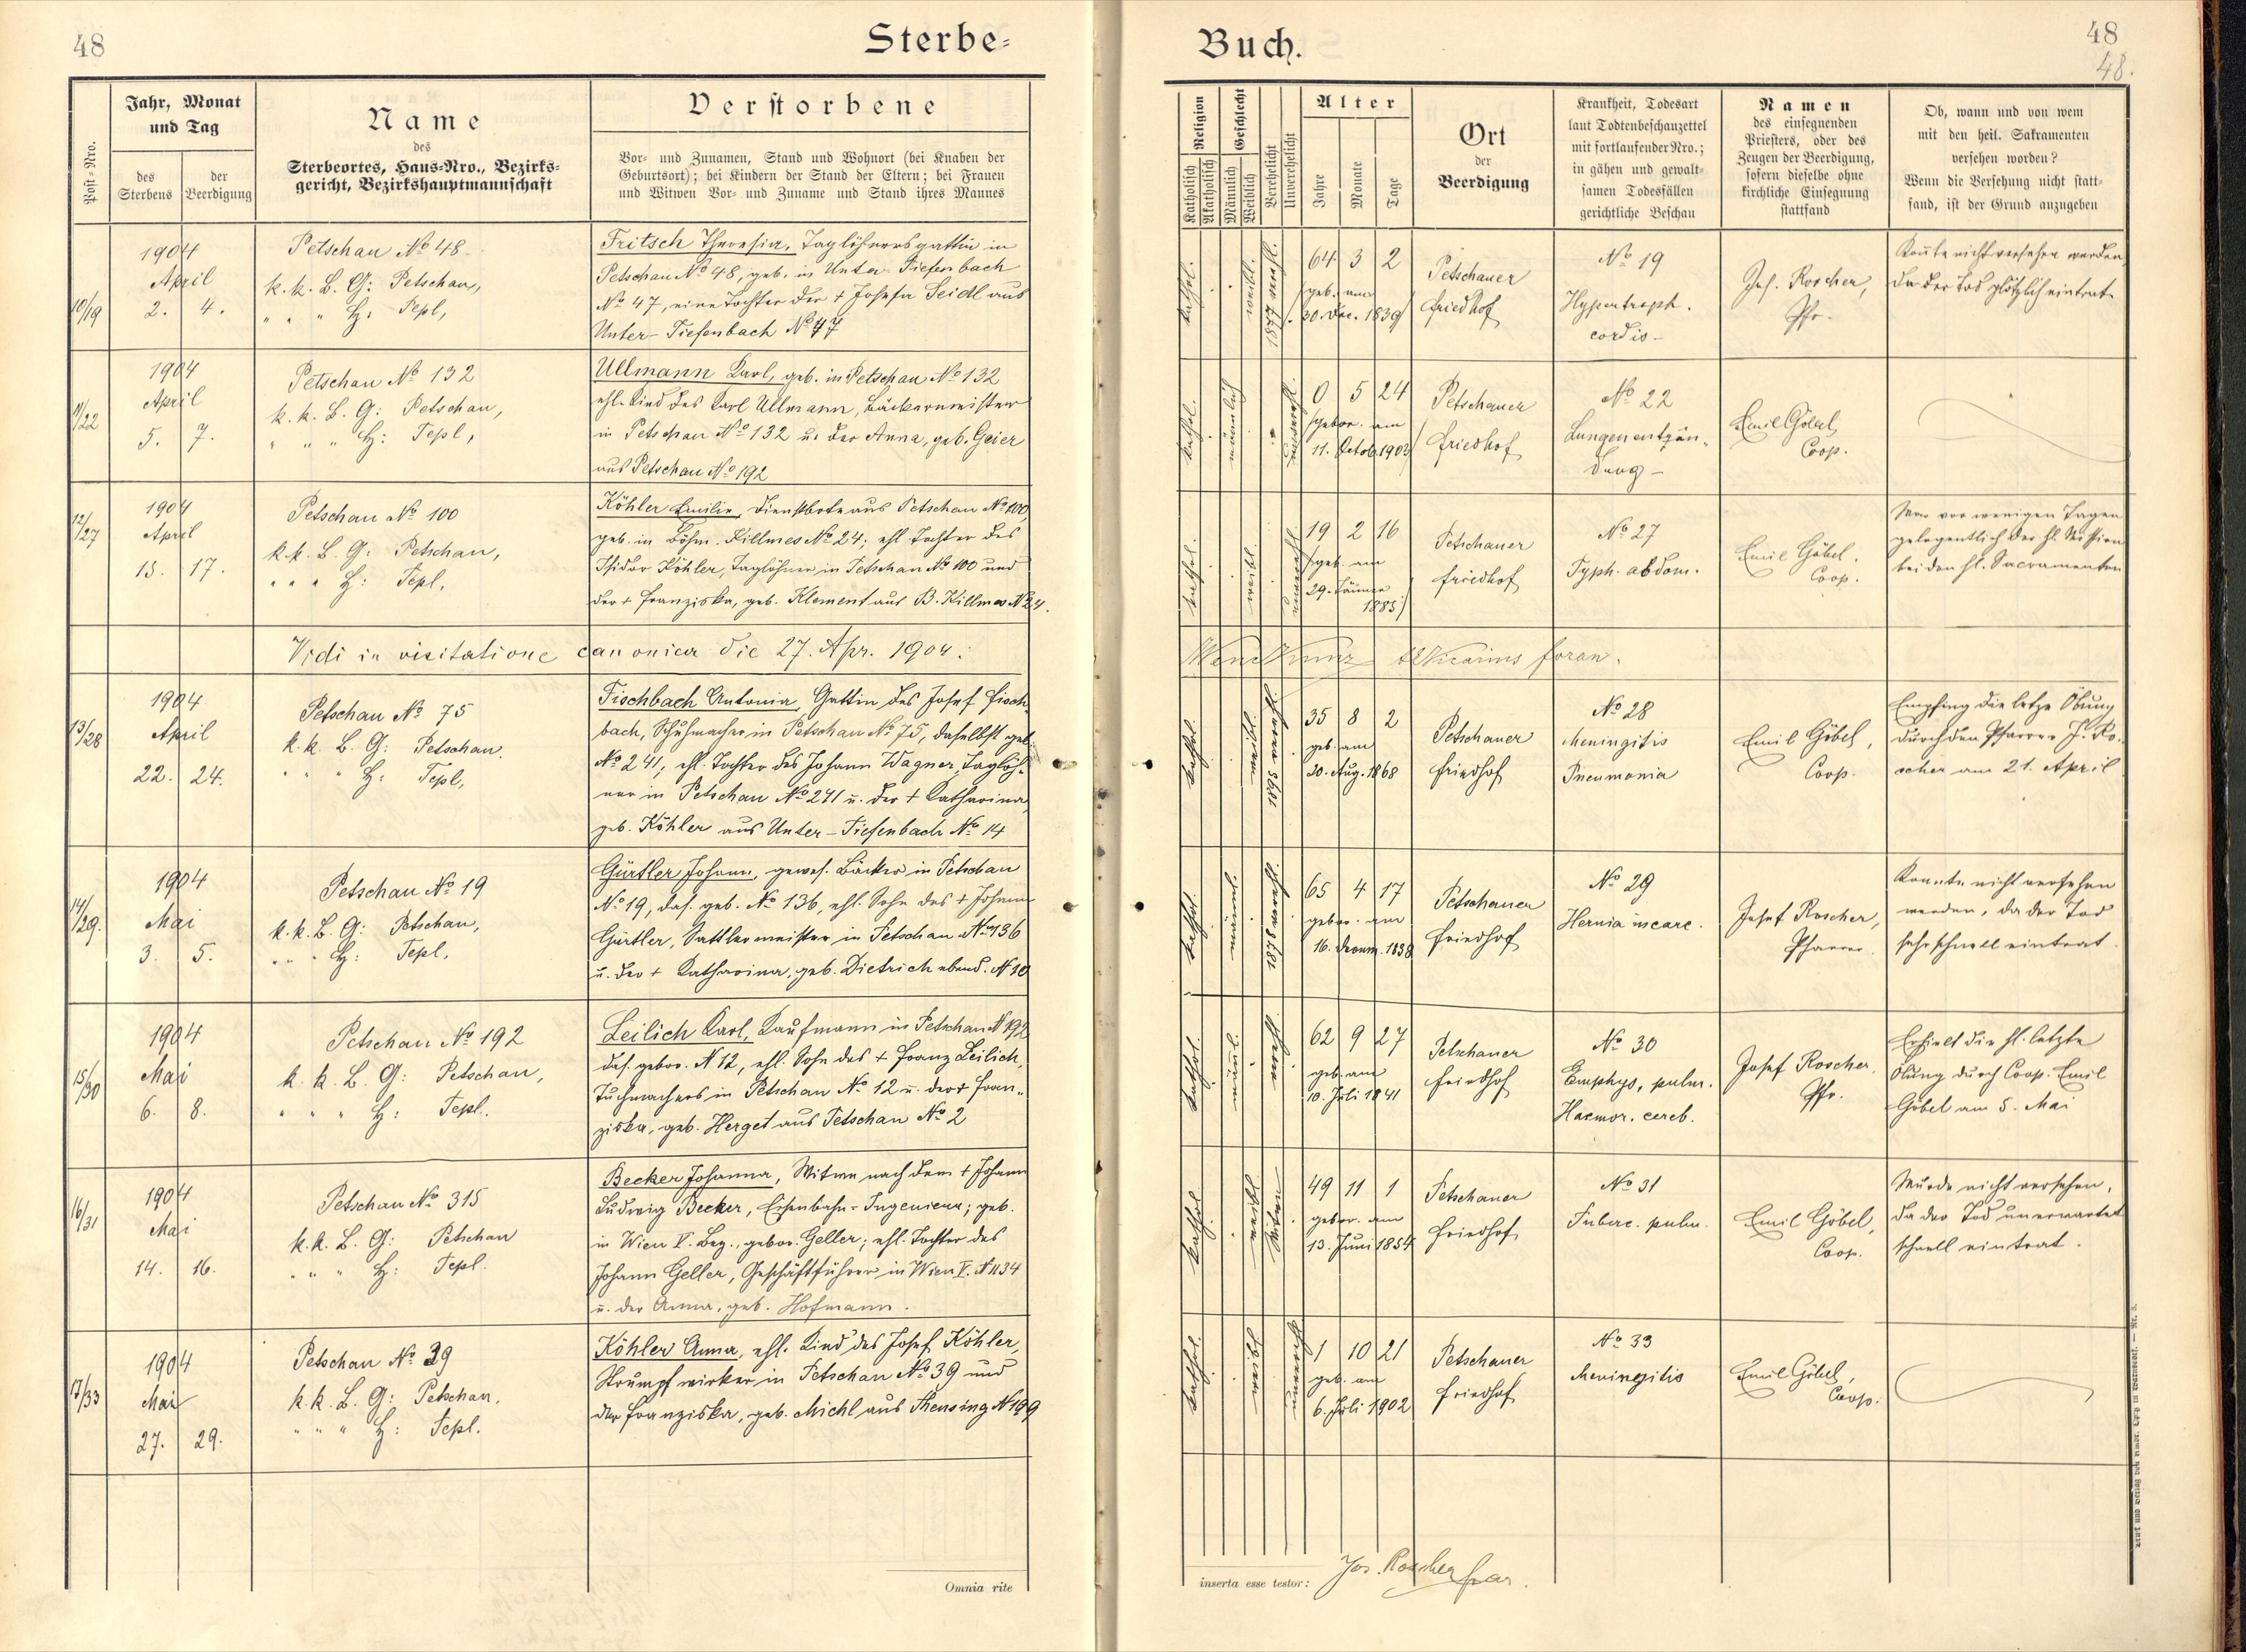 48
Sterbe-
Post-Nro.
Jahr, Monat
und Tag
des
Sterbens
der
Beerdigung
Name
des
Sterbeortes, Haus-Nro., Bezirks-
gericht, Bezirkshauptmannschaft
Verstorbene
Vor- und Zunamen, Stand und Wohnort (bei Knaben der
Geburtsort); bei Kindern der Stand der Eltern; bei Frauen
und Witwen Vor- und Zuname und Stand ihres Mannes
10/19
1904
April
2. 4.
Petschau No 48.
k. k. B. G: Petschau,
" " " H: Tepl,
Fritsch Theresia, Taglöhnersgattin in
Petschau No 48, geb. in Unter-Tiefenbach
No 47, eine Tochter der + Josefa Seidl aus
Unter-Tiefenbach No 47
11/22
1904
April
5. 7.
Petschau No 132
k. k. B. G: Petschau,
" " " H: Tepl,
Ullmann Karl, geb. in Petschau No 132
ehl. Kind des Karl Ullmann, Bäckermeister
in Petschau No 132 u. der Anna, geb. Geier
aus Petschau No 192
12/27
1904
April
15. 17.
Petschau No 100
k. k. B. G: Petschau,
" " " H: Tepl,
Köhler Emilie, Dienstbote aus Petschau No 100,
geb. in Böhm. Killmes No 24; ehl. Tochter des
Isidor Köhler, Taglöhner in Petschau No 100 und
der + Franziska, geb. Klement aus B. Killmes No 24.
Vidi in visitatione canonica die 27. Apr. 1904.
13/28
1904
April
22. 24.
Petschau No 75
k. k. B. G: Petschau.
" " " H: Tepl,
Fischbach Antonia, Gattin des Josef Fisch-
bach, Schuhmacher in Petschau No 75, daselbst geb.
No 241; ehl. Tochter des Johann Wagner, Taglöh-
ner in Petschau No 241 u. der + Katharina
geb. Köhler aus Unter-Tiefenbach No 14
14/29.
1904
Mai
3. 5.
Petschau No 19
k. k. B. G: Petschau,
" " " H: Tepl,
Gürtler Johann, gewes. Bäcker in Petschau
No 19, das. geb. No 136, ehl. Sohn des + Johann
Gürtler, Sattlermeister in Petschau No 136
u. der + Katharina, geb. Dietrich ebend. N 10
15/30
1904
Mai
6. 8.
Petschau No 192
k. k. B. G: Petschau,
" " " H: Tepl.
Leilich Karl, Kaufmann in Petschau N 192
das. gebor. N 12, ehl. Sohn des + Franz Leilich,
Tuchmachers in Petschau No 12 u. der + Fran-
ziska, geb. Herget aus Petschau No 2
16/31
1904
Mai
14. 16.
Petschau No 315
k. k. B. G: Petschau
" " " H: Tepl.
Becker Johanna, Witwe nach dem + Johann
Ludwig Becker, Eisenbahn-Ingenieur; geb.
in Wien V. Bez., gebor. Geller; ehl. Tochter des
Johann Geller, Geschäftsführer in Wien V. N 1134
u. der Anna, geb. Hofmann.
17/33
1904
Mai
27. 29.
Petschau No 39
k. k. B. G: Petschau.
" " " H: Tepl.
Köhler Anna, ehl. Kind des Josef Köhler,
Strumpfwirker in Petschau No 39 und
der Franziska, geb. Michl aus Thensing N 199
Omnia rite
Buch.
48
48.
Religion
Katholisch
Akatholisch
Geschlecht
Männlich
Weiblich
Verehelicht
Unverehelicht
Alter
Jahre
Monate
Tage
Ort
der
Beerdigung
Krankheit, Todesart
laut Todtenbeschauzettel
mit fortlaufender Nro.;
in gähen und gewalt-
samen Todesfällen
gerichtliche Beschau
Namen
des einsegnenden
Priesters, oder des
Zeugen der Beerdigung,
sofern dieselbe ohne
kirchliche Einsegnung
stattfand
Ob, wann und von wem
mit den heil. Sakramenten
versehen worden?
Wenn die Versehung nicht statt-
fand, ist der Grund anzugeben
kathol.
weibl.
64 3 2
geb. am
30. Dec. 1839
Petschauer
Friedhof
No 19
Hypertroph.
cordis
Jos. Roscher,
Pfr.
Konnte nicht versehen werden,
da der Tod plötzlich eintrat.
kathol.
männlich
0 5 24
gebor. am
11. Octob. 1903
Petschauer
Friedhof
No 22
Lungenentzün-
dung
Emil Göbel,
Coop.
kathol.
weibl.
19 2 16
geb. am
29. Jänner
1885
Petschauer
Friedhof
No 27
Typh. abdom.
Emil Göbel.
Coop.
War vor wenigen Tagen
gelegentlich der hl. Mission
bei den hl. Sacramenten
Vicarius foran.
kathol.
weibl.
35 8 2
geb. am
20. Aug. 1868
Petschauer
Friedhof
No 28
Meningitis
Pneumonia
Emil Göbel,
Coop.
Empfing die letzte Ölung
durch den Pfarrer J. Ro-
scher am 21. April
kathol.
männl.
65 4 17
gebor. am
16. Dezem. 1838
Petschauer
Friedhof
No 29
Hernia incarc.
Josef Roscher,
Pfarrer.
Konnte nicht versehen
werden, da der Tod
sehr schnell eintrat.
kathol.
männl.
62 9 27
geb. am
10. Juli 1841
Petschauer
Friedhof
No 30
Emphys. pulm.
Haemor. cereb.
Josef Roscher,
Pfr.
Erhielt die hl. letzte
Ölung durch Coop. Emil
Göbel am 5. Mai
kathol.
weibl.
Witwe
49 11 1
gebor. am
13. Juni 1854
Petschauer
Friedhof
No 31
Tuberc. pulm.
Emil Göbel,
Coop.
Wurde nicht versehen,
da der Tod unerwartet
schnell eintrat.
kathol.
weibl.
1 10 21
geb. am
6. Juli 1902
Petschauer
Friedhof
No 33
Meningitis
Emil Göbel,
Coop.
inserta esse testor:
Jos. Roscher par.